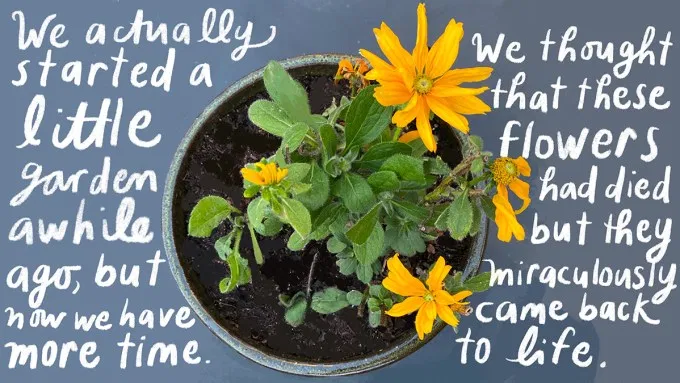 We actually
started a
little
garden
awhile
ago, but
now we have
more time.
We thought
that these
flowers
had died
but they
miraculously
came back
to life.